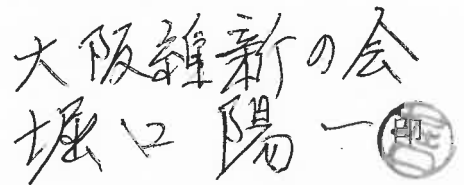 大阪維新の会
堀口 陽一 印